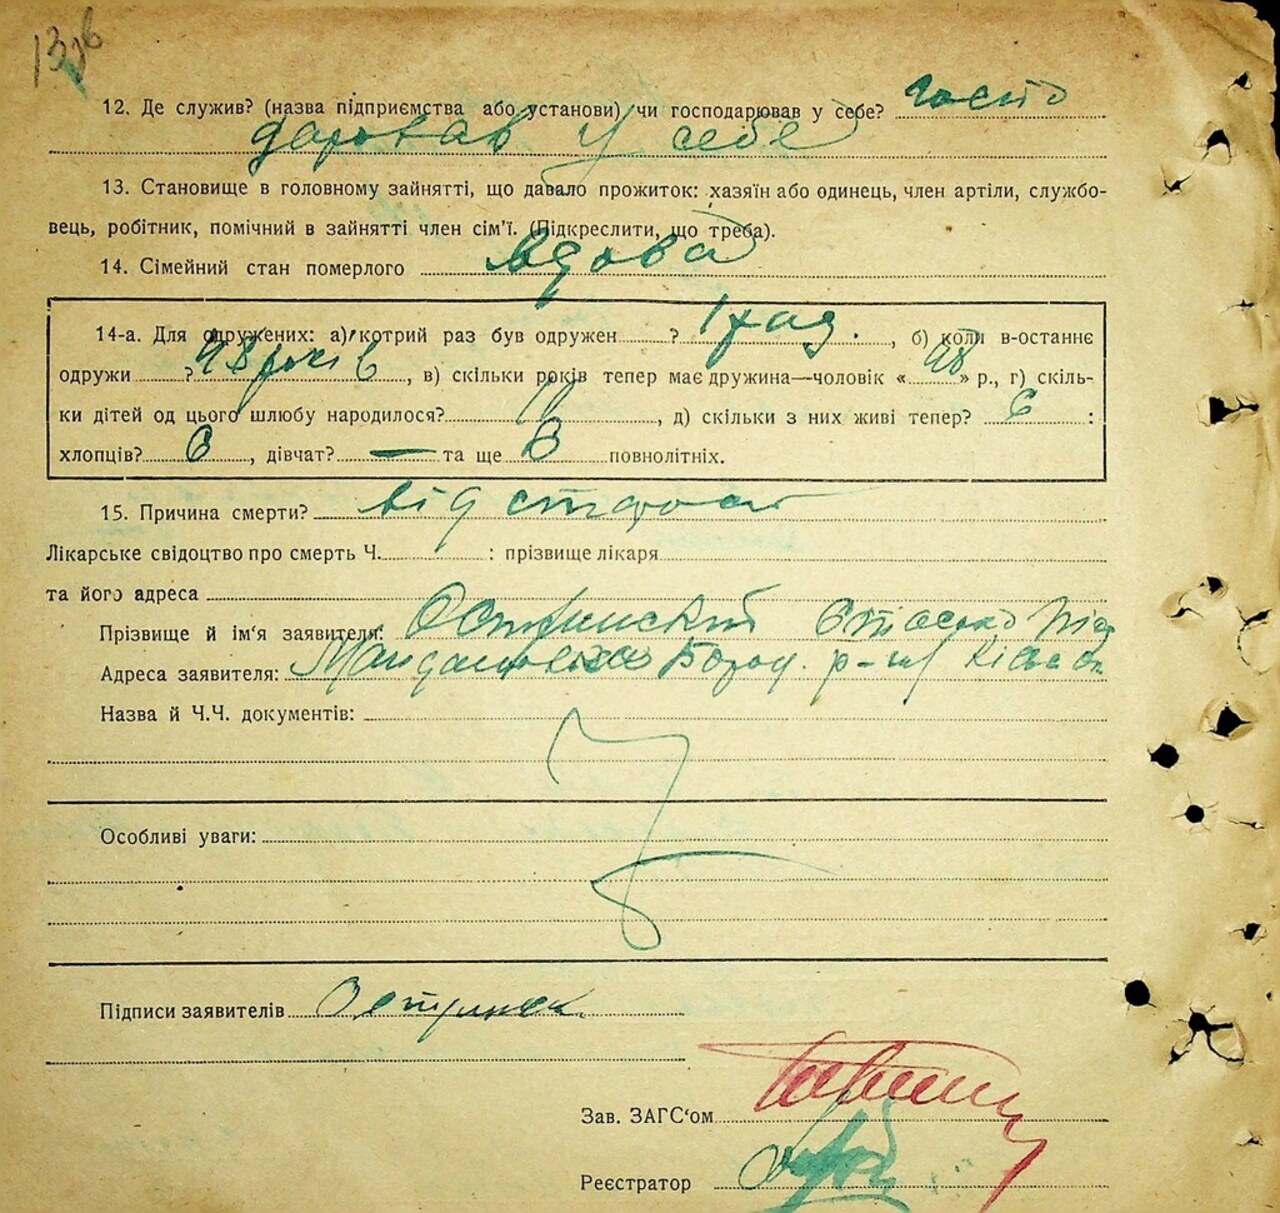 12. Де служив? (назва підприємства або установи) чи господарював у себе? госпо
дарював у себе
13. Становище в головному зайнятті, що давало прожиток: хазяїн або одинець, член артіли, службо-
вець, робітник, помічний в зайнятті член сім'ї. (Підкреслити, що треба).
14. Сімейний стан померлого вдова
14-а. Для одружених: а) котрий раз був одружен ? 1 раз, б) коли в-останнє
одружи ? 48 років, в) скільки років тепер має дружина—чоловік « » р., г) скіль-
ки дітей од цього шлюбу народилося?, д) скільки з них живі тепер? 6 :
хлопців? 6, дівчат? — та ще повнолітніх.
15. Причина смерти? від старости
Лікарське свідоцтво про смерть Ч. : прізвище лікаря
та його адреса
Прізвище й ім'я заявителя:
Адреса заявителя: Бород. р-ну
Назва й Ч.Ч. документів:
Особливі уваги:
Підписи заявителів
Зав. ЗАГС'ом
Реєстратор